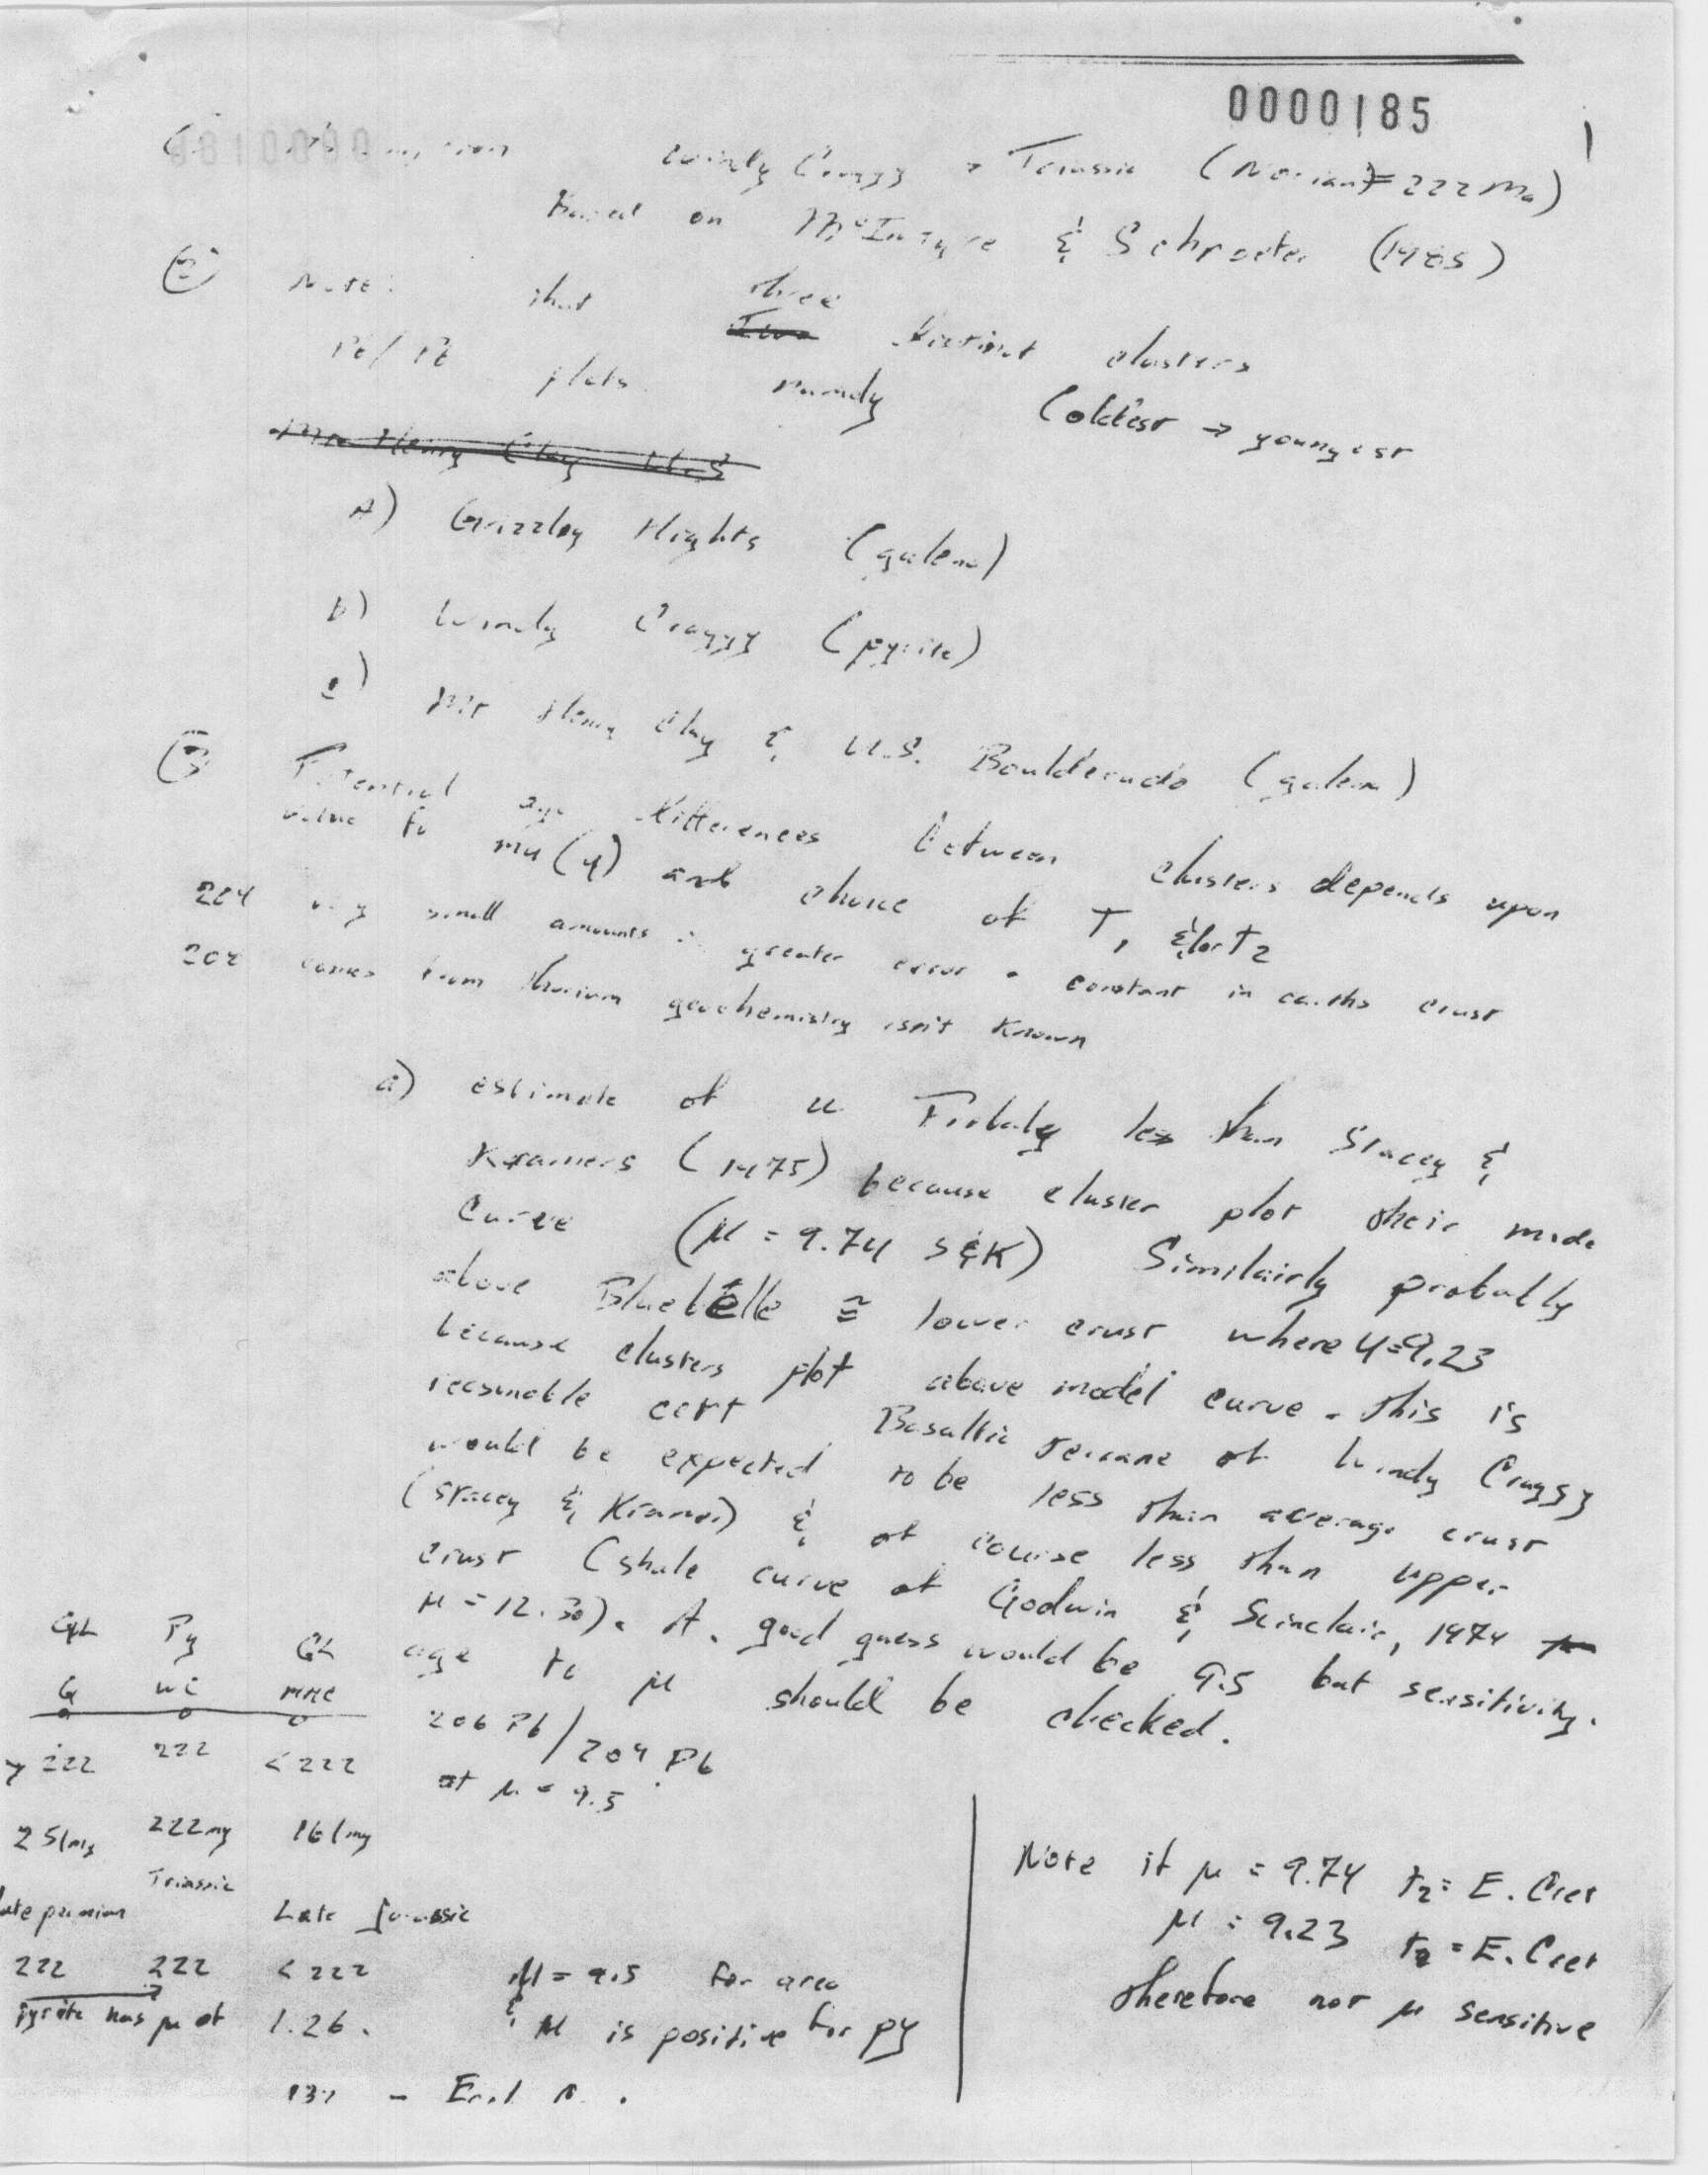 0000185
1
Windy Craggy = Triassic (Norian = 222 Ma)
Based on McIntyre & Schroeter (1985)
② Note: that three Two distinct clusters
Pb/Pb plots namely (oldest → youngest
Mt. Henry Clay U.S
A) Grizzley Hights (galena)
b) Windy Craggy (pyrite)
c) Mt Henry Clay & U.S. Boulderado (galena)
③ Potential age differences between clusters depends upon
value for mu (μ) and choice of T, &/or t2
204 very small amounts ∴ greater error • constant in earths crust
208 comes from thorium geochemistry isn't known
a) estimate of u Probaly less than Stacey &
Kramers (1975) because cluster plot their mode
Curve (μ = 9.74 S&K) Similairly probally
above Bluebelle ≅ lower crust where μ=9.23
because clusters plot above model curve. This is
reasonable Basaltic terrane at Windy Craggy
would be expected to be less than average crust
(Stacey & Kramer) & of course less than upper
crust (shale curve of Godwin & Scinclair, 1974
μ = 12.30). A good guess would be 9.5 but sensitivity.
age to μ should be checked.
Gal Py Gl
G WC MHC
> 222 222 < 222
206 Pb/204 Pb
at μ = 9.5
251my 222my 161my
Triassic
late permian Late Jurassic
222 222 < 222
pyrite has μ of 1.26.
μ = 9.5 for area
& μ is positive for py
Note if μ = 9.74 t2 = E. Cret
μ = 9.23 t2 = E. Cret
therefore not μ sensitive